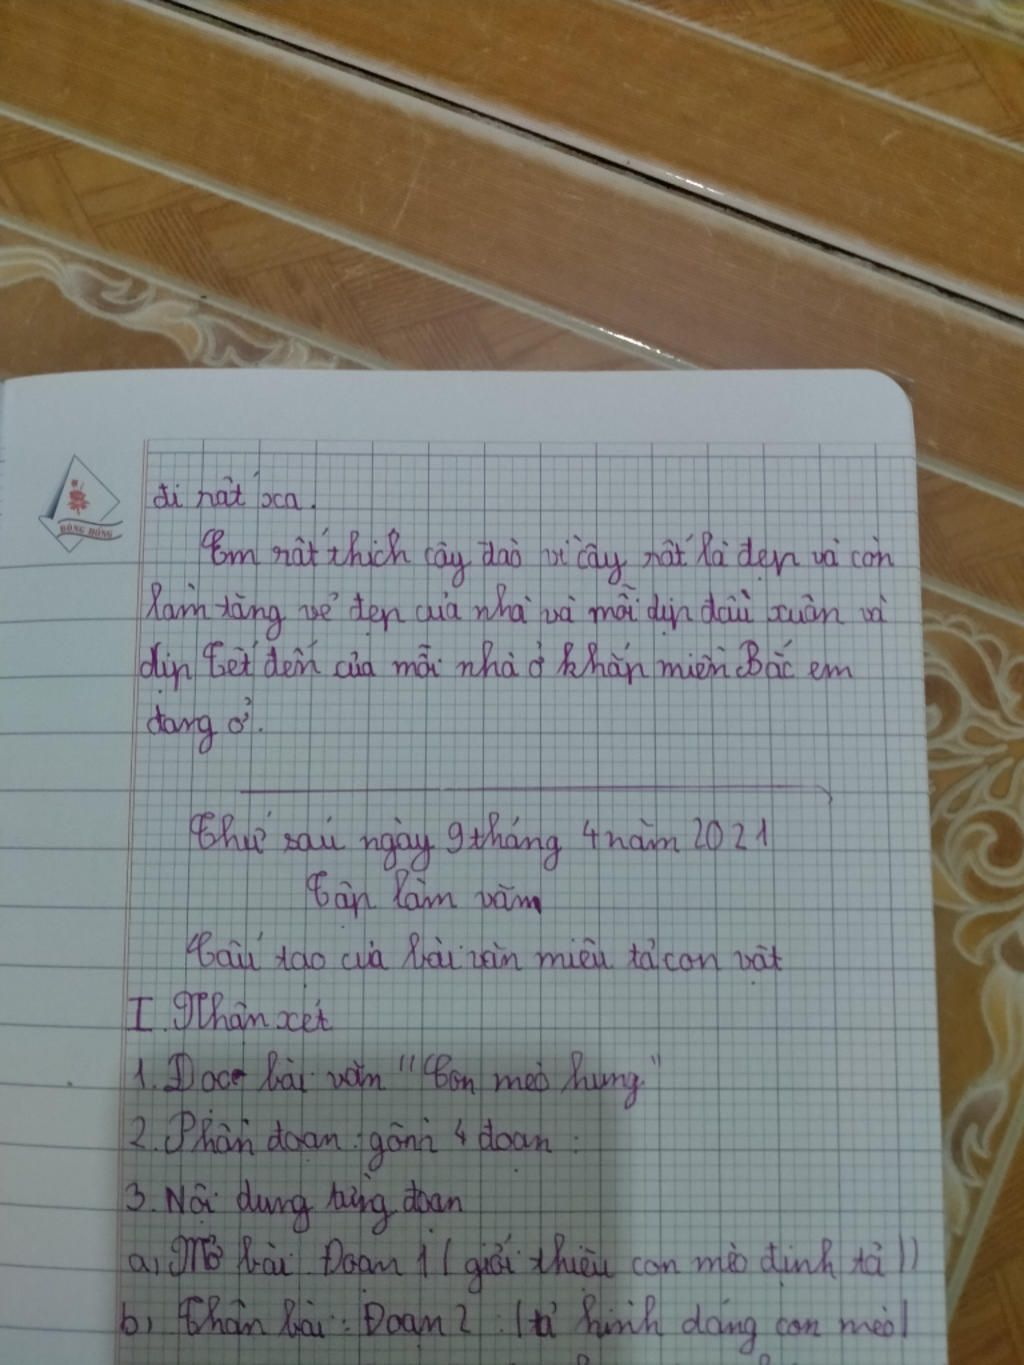 BÔNG HỒNG
đi rất xa.
Em rất thích cây đào vì cây rất là đẹp và còn
làm tăng vẻ đẹp của nhà và mỗi dịp đầu xuân và
dịp Tết đến của mỗi nhà ở khắp miền Bắc em
đang ở.
Thứ sáu ngày 9 tháng 4 năm 2021
Tập làm văn
Cấu tạo của bài văn miêu tả con vật
I. Nhận xét
1. Đọc bài văn "Con mèo hung"
2. Phân đoạn: gồm 4 đoạn:
3. Nội dung từng đoạn
a, Mở bài: Đoạn 1 (giới thiệu con mèo định tả))
b, Thân bài: Đoạn 2: (tả hình dáng con mèo)